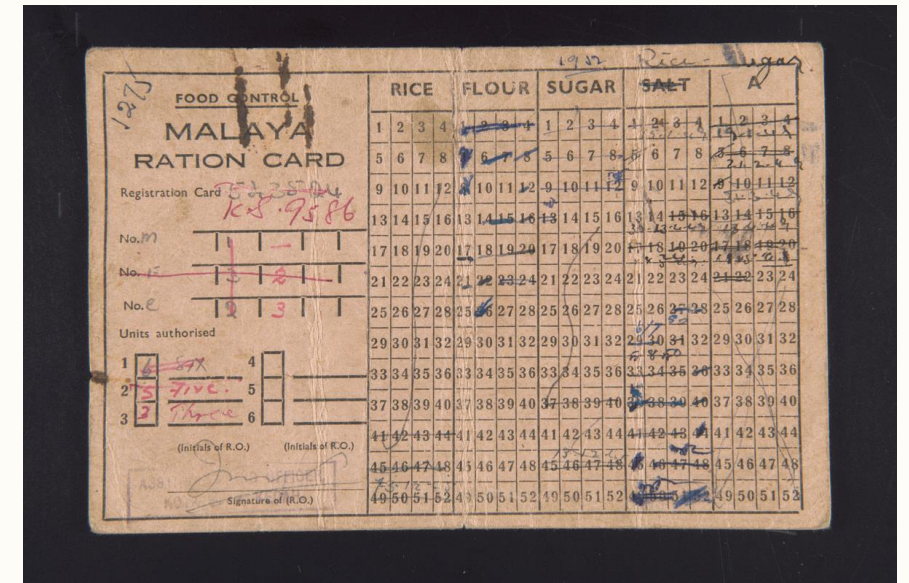 1275
FOOD CONTROL
MALAYA
RATION CARD
Registration Card
K.S. 9586
No. m 1 —
No. 2
No. e 2 3
Units authorised
1 6 Six 4
2 5 Five. 5
3 3 Three 6
(Initials of R.O.) (Initials of R.O.)
Signature of (R.O.)
1952 Rice - Sugar.
RICE FLOUR SUGAR SALT A
1 2 3 4 1 2 3 4 1 2 3 4 1 2 3 4 1 2 3 4
5 6 7 8 6 7 8 5 6 7 8 5 6 7 8 5 6 7 8
9 10 11 12 10 11 12 9 10 11 12 9 10 11 12 9 10 11 12
13 14 15 16 13 14 15 16 13 14 15 16 13 14 15 16 13 14 15 16
17 18 19 20 17 18 19 20 17 18 19 20 17 18 19 20 17 18 19 20
21 22 23 24 21 22 23 24 21 22 23 24 21 22 23 24 21 22 23 24
25 26 27 28 25 27 28 25 26 27 28 25 26 27 28 25 26 27 28
29 30 31 32 29 30 31 32 29 30 31 32 29 30 31 32 29 30 31 32
33 34 35 36 33 34 35 36 33 34 35 36 33 34 35 36 33 34 35 36
37 38 39 40 37 38 39 40 37 38 39 40 38 39 40 37 38 39 40
41 42 43 44 41 42 43 44 41 42 43 44 41 42 43 44 41 42 43 44
45 46 47 48 45 46 47 48 45 46 47 48 46 47 48 45 46 47 48
49 50 51 52 49 50 51 52 49 50 51 52 49 50 51 52 49 50 51 52